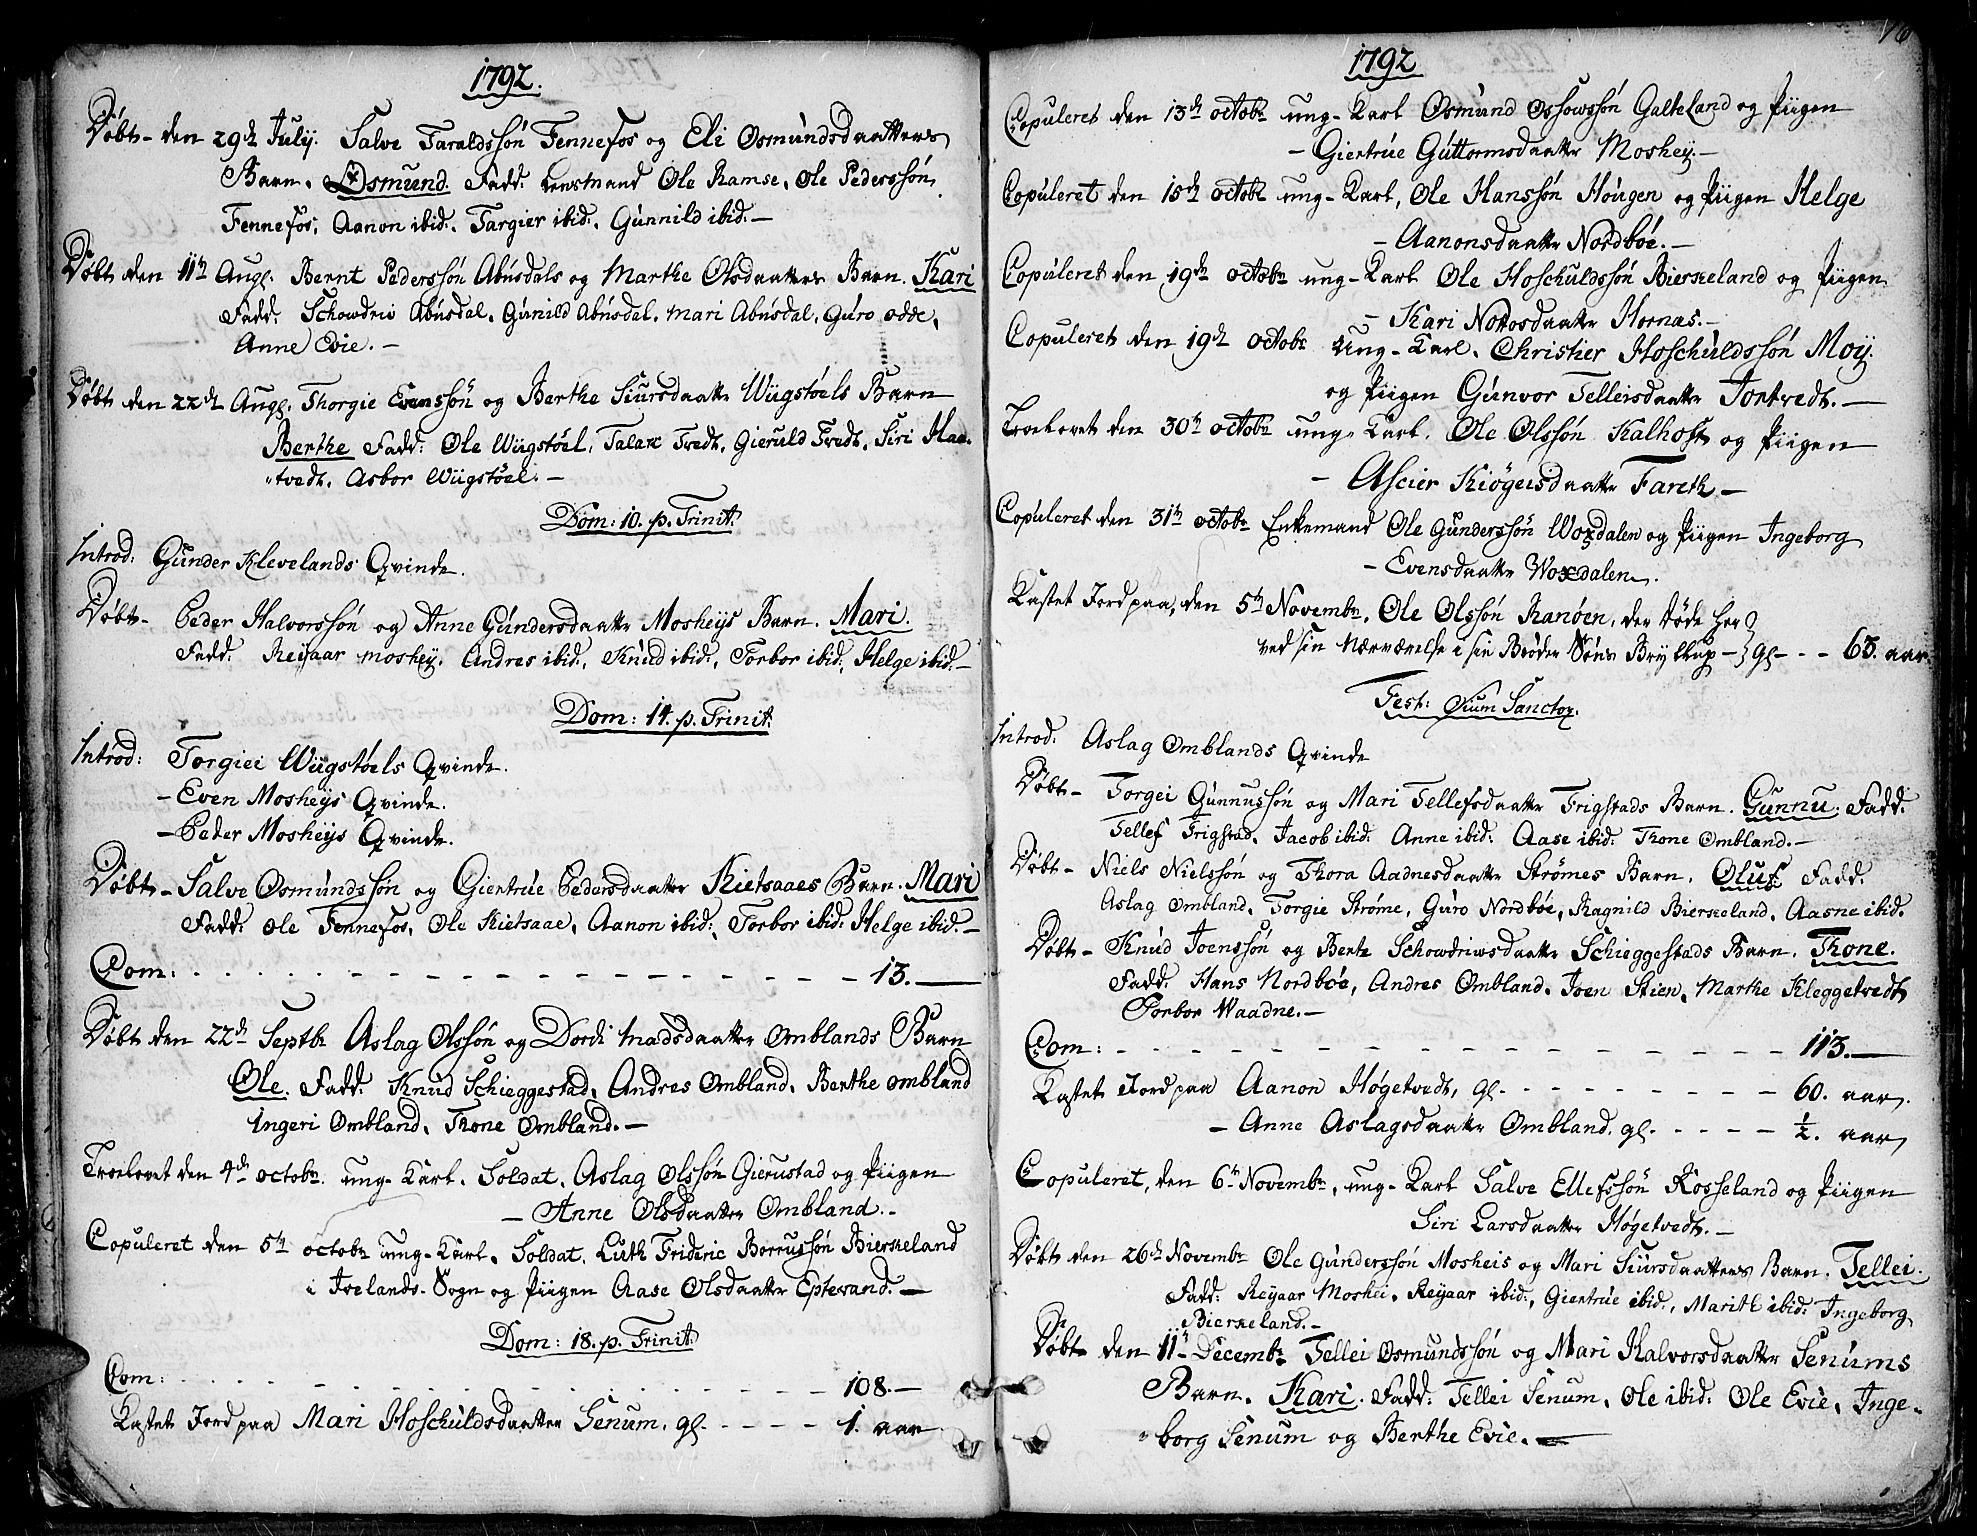 1792.
Døbt - den 29de Julij. Salve Taraldssøn Fennefos og Eli Osmundsdaatters
Barn. Osmund. Fadd: Lensmand Ole Ramse, Ole Pederssøn
Fennefos, Aanon ibid:, Targier ibid:, Gunnild ibid: -
Døbt den 11te Aug. Bernt Pederssøn Abusdals og Marthe Olsdaatters Barn. Kari
Fadd: Schowdrei Abusdal, Gunild Abusdal, Mari Abusdal, Guro Odde,
Anne Evie. -
Døbt den 22de Aug. Thorgie Evenssøn og Berthe Siursdaattr Wiigstøels Barn
Berthe Fadd: Ole Wiigstøel, Talax Tvedt, Gieruld Tvedt, Siri Haa-
tvedt, Asbor Wiigstøel. -
Dom: 10. p. Trinit:
Introd: Gunder Klevelands Qvinde.
Døbt - Peder Halvorssøn og Anne Gundersdaattr Mosheys Barn. Mari.
Fadd: Reijaar Moshey, Andres ibid:, Knud ibid:, Torbor ibid:, Helge ibid: -
Dom: 14. p. Trinit:
Introd: Torgiei Wiigstøels Qvinde.
- Even Mosheijs Qvinde.
- Peder Mosheijs Qvinde.
Døbt - Salve Osmundssøn og Giertrue Pedersdaatter Kietsaaes Barn. Mari
Fadd: Ole Fennefos, Ole Kietsaae, Aanon ibid:, Torbor ibid: Helge ibid. -
Com: - - - 13. -
Døbt den 22de Septbr Aslag Olssøn og Dordi Madsdaatter Omblands Barn
Ole. Fadd: Knud Schieggestad, Andres Ombland, Berthe Ombland
Ingeri Ombland, Thone Ombland. -
Troelovet den 4de octobr. ung-Karl. Soldat. Aslag Olssøn Gierustad og Piigen
- Anne Olsdaatter Ombland. -
Copuleret den 5te octobr ung-Karl. Soldat. Luth Frideric Borrussøn Bierkeland
i Ivelands-Sogn og Piigen Aase Olsdaatter Eptevand. -
Dom: 18. p. Trinit:
Com: - - - 108. -
Kastet Jord paa Mari Hoschuldsdaatter Senum, gl. - - - 1. aar
1792
76
Copuleret den 13de octobr ung-Karl Osmund Ossowssøn Galteland og Piigen
- Giertrue Guttormsdaattr Moshey. -
Copuleret den 15de octobr ung-Karl, Ole Hanssøn Hougen og Piigen Helge
- Aanonsdaattr Nordbøe. -
Copuleret den 19de octobr ung-Karl Ole Hoschuldssøn Bierkeland og Piigen
- Kari Nottosdaattr Hornæs. -
Copuleret den 19de octobr Ung-Karl. Christier Hoschuldssøn Moij.
og Piigen Gunvor Telleisdaattr Tortvedt. -
Troelovet den 30te octobr ung-Karl. Ole Olssøn Kalhoft og Piigen
- Ascier Kiøgeisdaattr Fareth -
Copuleret den 31te octobr Enkemand Ole Gunderssøn Woxdalen og Piigen Ingeborg
- Evensdaattr Woxdalen.
Kastet Jord paa, den 5te Novembr, Ole Olssøn Ranøen, der døde her
ved sin Nærværelse i sin Broder Søns Bryllup - gl - - - 63. aar.
Fest: Oium Sanctor.
Introd: Aslag Omblands Qvinde
Døbt - Torgei Gunnussøn og Mari Tellefsdaattr Frigstads Barn. Gunnu. Fadd:
Tellef Frigstad, Jacob ibid: Anne ibid: Aase ibid: Thone Ombland. -
Døbt - Niels Nielssøn og Thora Aadnesdaattr Strømes Barn. Oluf Fadd:
Aslag Ombland, Torgie Strøme, Guro Nordbøe, Ragnild Bierkeland, Aasne ibid.
Døbt - Knud Joenssøn og Berte Schowdriwsdaattr Schieggestads Barn. Thone.
Fadd: Hans Nordbøe, Andres Ombland, Joen Stien, Marthe Kleggetvedt
Torbor Waadne. -
Com: - - - 113. -
Kastet Jord paa Aanon Høgetvedt, gl. - - - 60. aar.
- Anne Aslagsdaattr Ombland. gl. - - - ½. aar
Copuleret, den 6te Novembr, ung-Karl Salve Ellefssøn Røsseland og Piigen
Siri Larsdaatter Høgetvedt. -
Døbt den 26de Novembr Ole Gunderssøn Mosheis og Mari Siursdaatters Barn. Tellei.
Fadd: Reijaar Moshei, Reijaar ibid:, Giertrue ibid:, Marith ibid: Ingeborg
Bierkeland. -
Døbt den 11te Decembr Tellei Osmundssøn og Mari Halvorsdaatter Senums
Barn. Kari. Fadd: Tellei Senum, Ole ibid: Ole Evie, Inge-
borg Senum og Berthe Evie. -